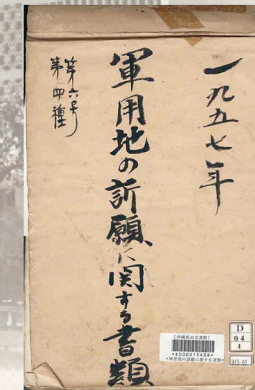 一九五七年
軍用地の訴願に関する書類
第六号
第四種
D
04
4